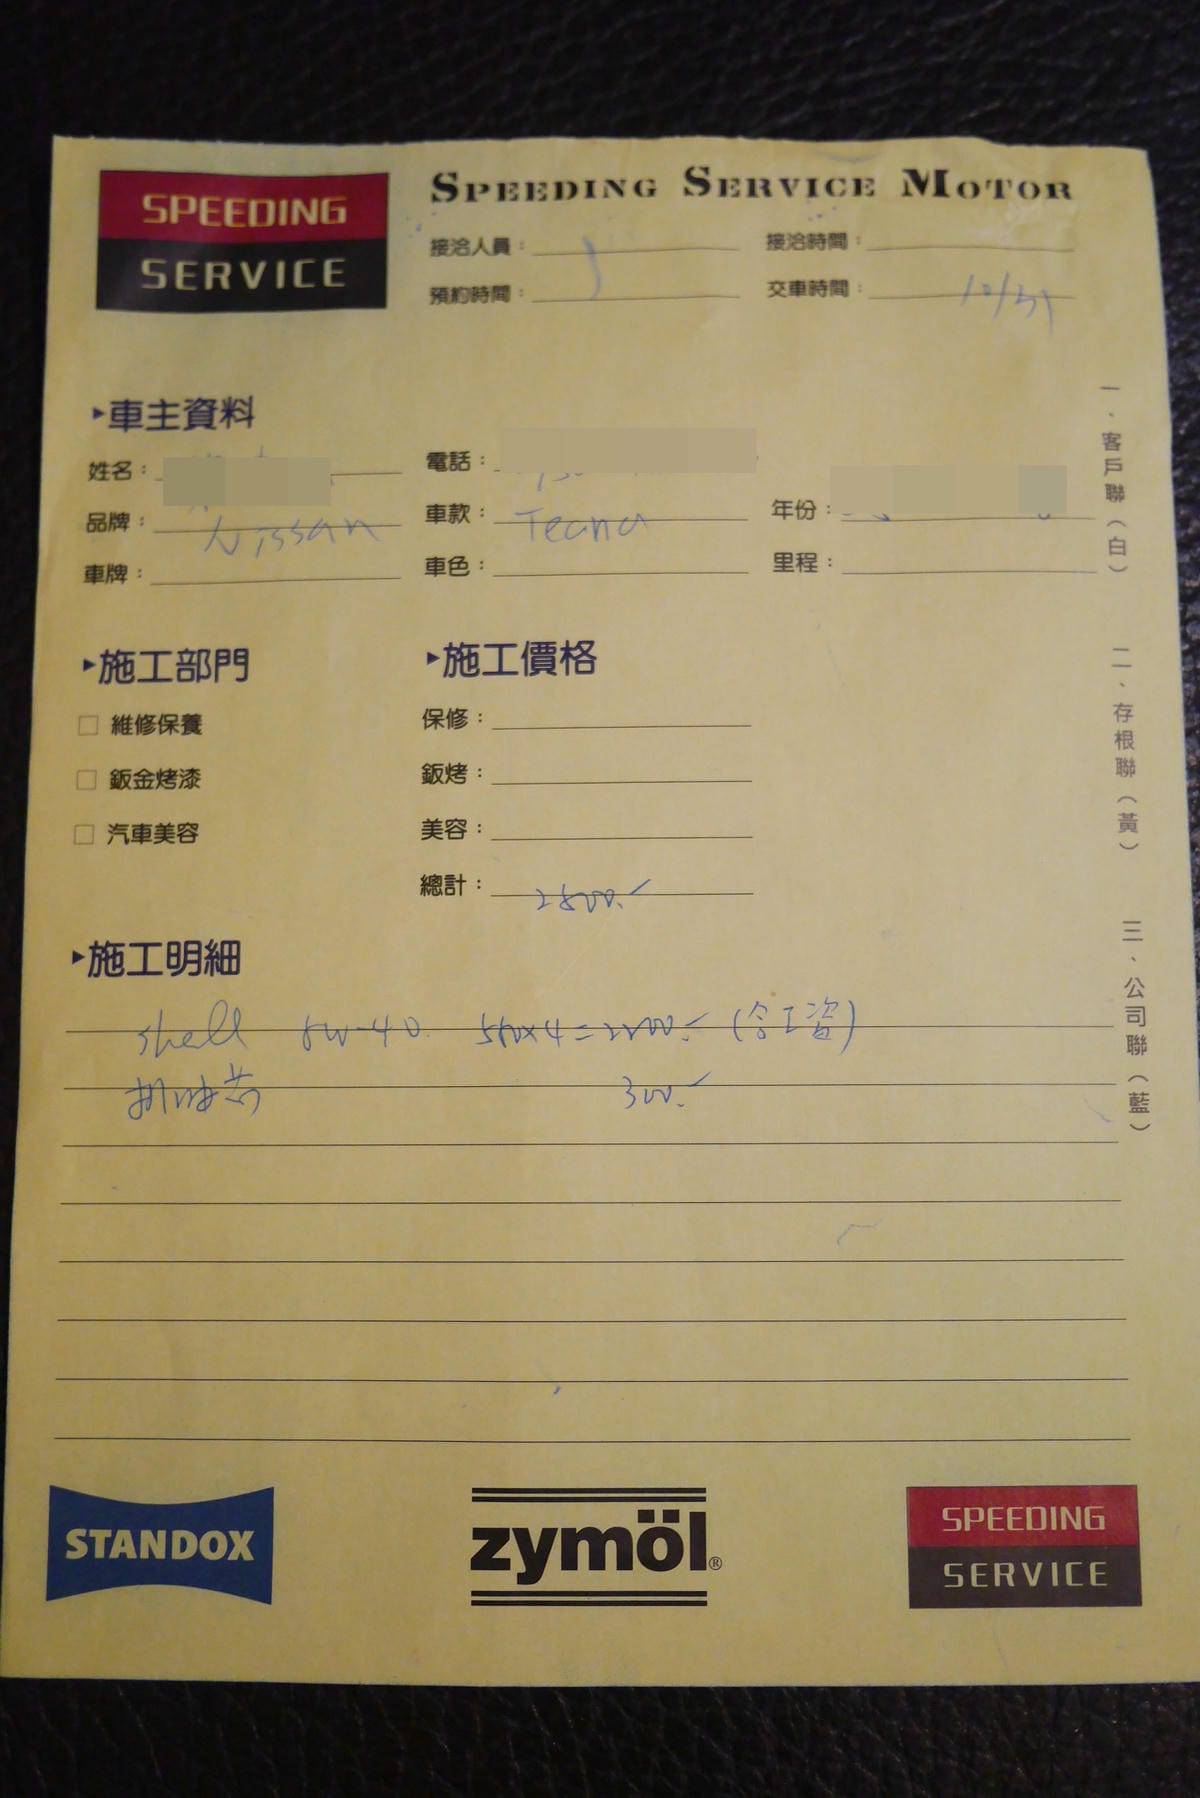 SPEEDING
SERVICE
SPEEDING SERVICE MOTOR
接洽人員：
接洽時間：
預約時間：
交車時間： 10/31
▸車主資料
姓名：
電話：
品牌： Nissan
車款： Teana
年份：
車牌：
車色：
里程：
▸施工部門
▸施工價格
□ 維修保養
保修：
□ 鈑金烤漆
鈑烤：
□ 汽車美容
美容：
總計： 2500.
▸施工明細
shell 5W-40. 550×4=2200. (含工資)
300.
一、客戶聯（白）
二、存根聯（黃）
三、公司聯（藍）
STANDOX
zymöl®
SPEEDING
SERVICE